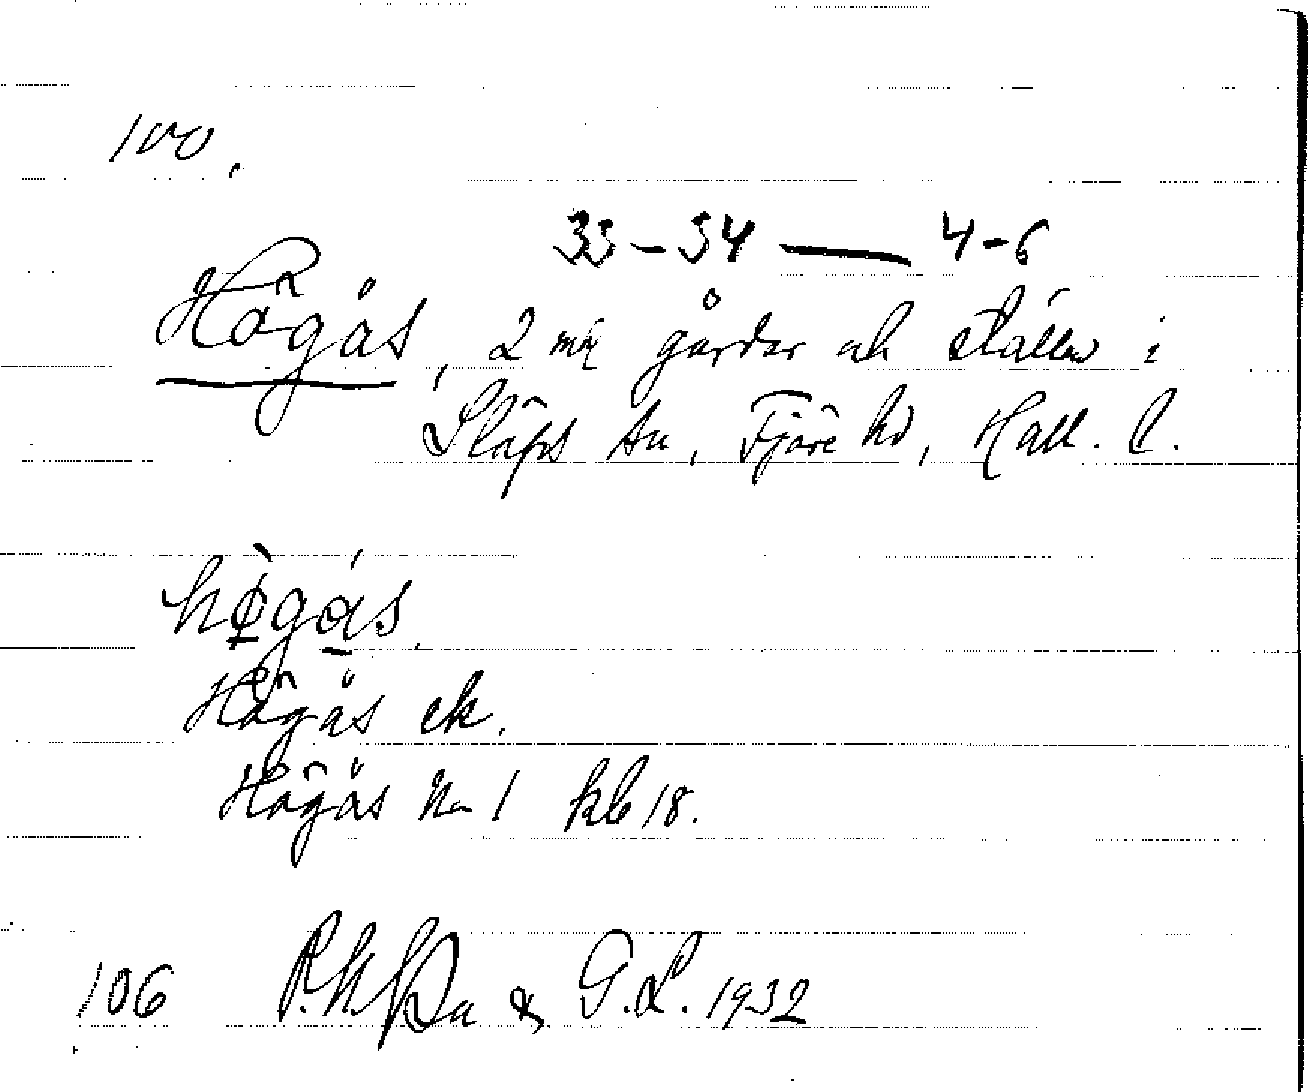 100.
33-34 — 4-6
Högås, 2 gårdar och ställen i
Släps sn, Fjäre hd, Hall. l.
hø̀gås.
Högås ek.
Högås No 1 kb 18.
106 & G.L. 1932